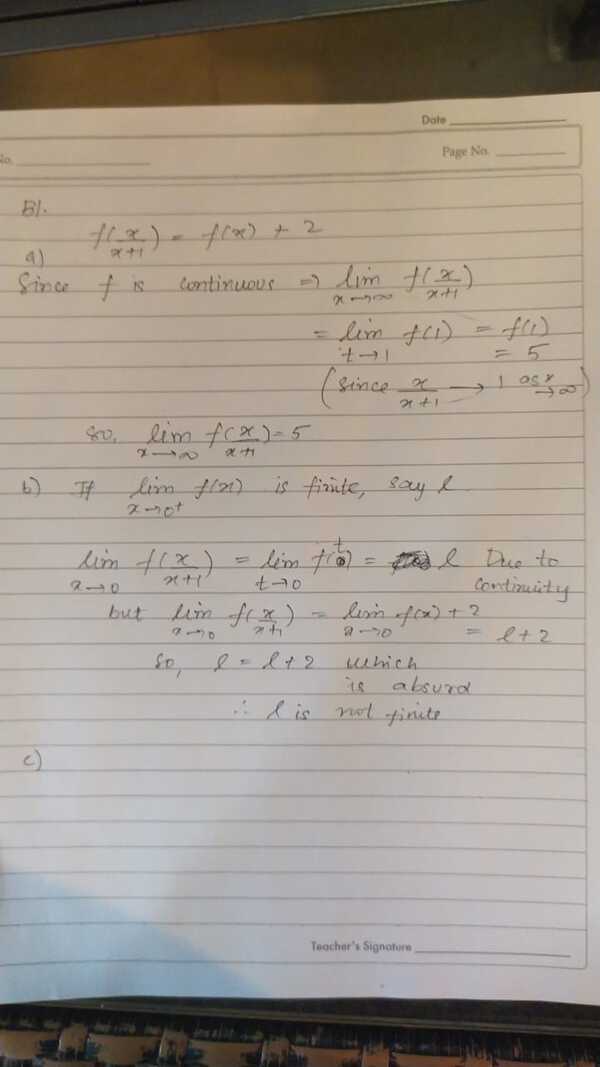 Date
No.
Page No.
B1.
f(x/x+1) = f(x) + 2
a)
Since f is continuous ⇒ lim x→∞ f(x/x+1)
= lim t→1 f(1) = f(1)
= 5
(since x/x+1 → 1 as x→∞)
so, lim x→∞ f(x/x+1) = 5
b) If lim x→0+ f(x) is finite, say l
lim x→0 f(x/x+1) = lim t→0 f(t) = l Due to
continuity
but lim x→0 f(x/x+1) = lim x→0 f(x) + 2
= l + 2
so, l = l + 2 which
is absurd
∴ l is not finite
c)
Teacher's Signature